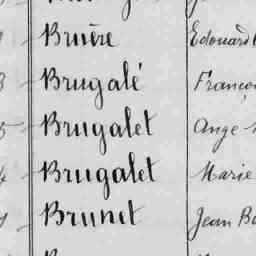 Bruère Edouard
Brugalé Franço
Brugalet Ange
Brugalet Marie
Brunet Jean Ba